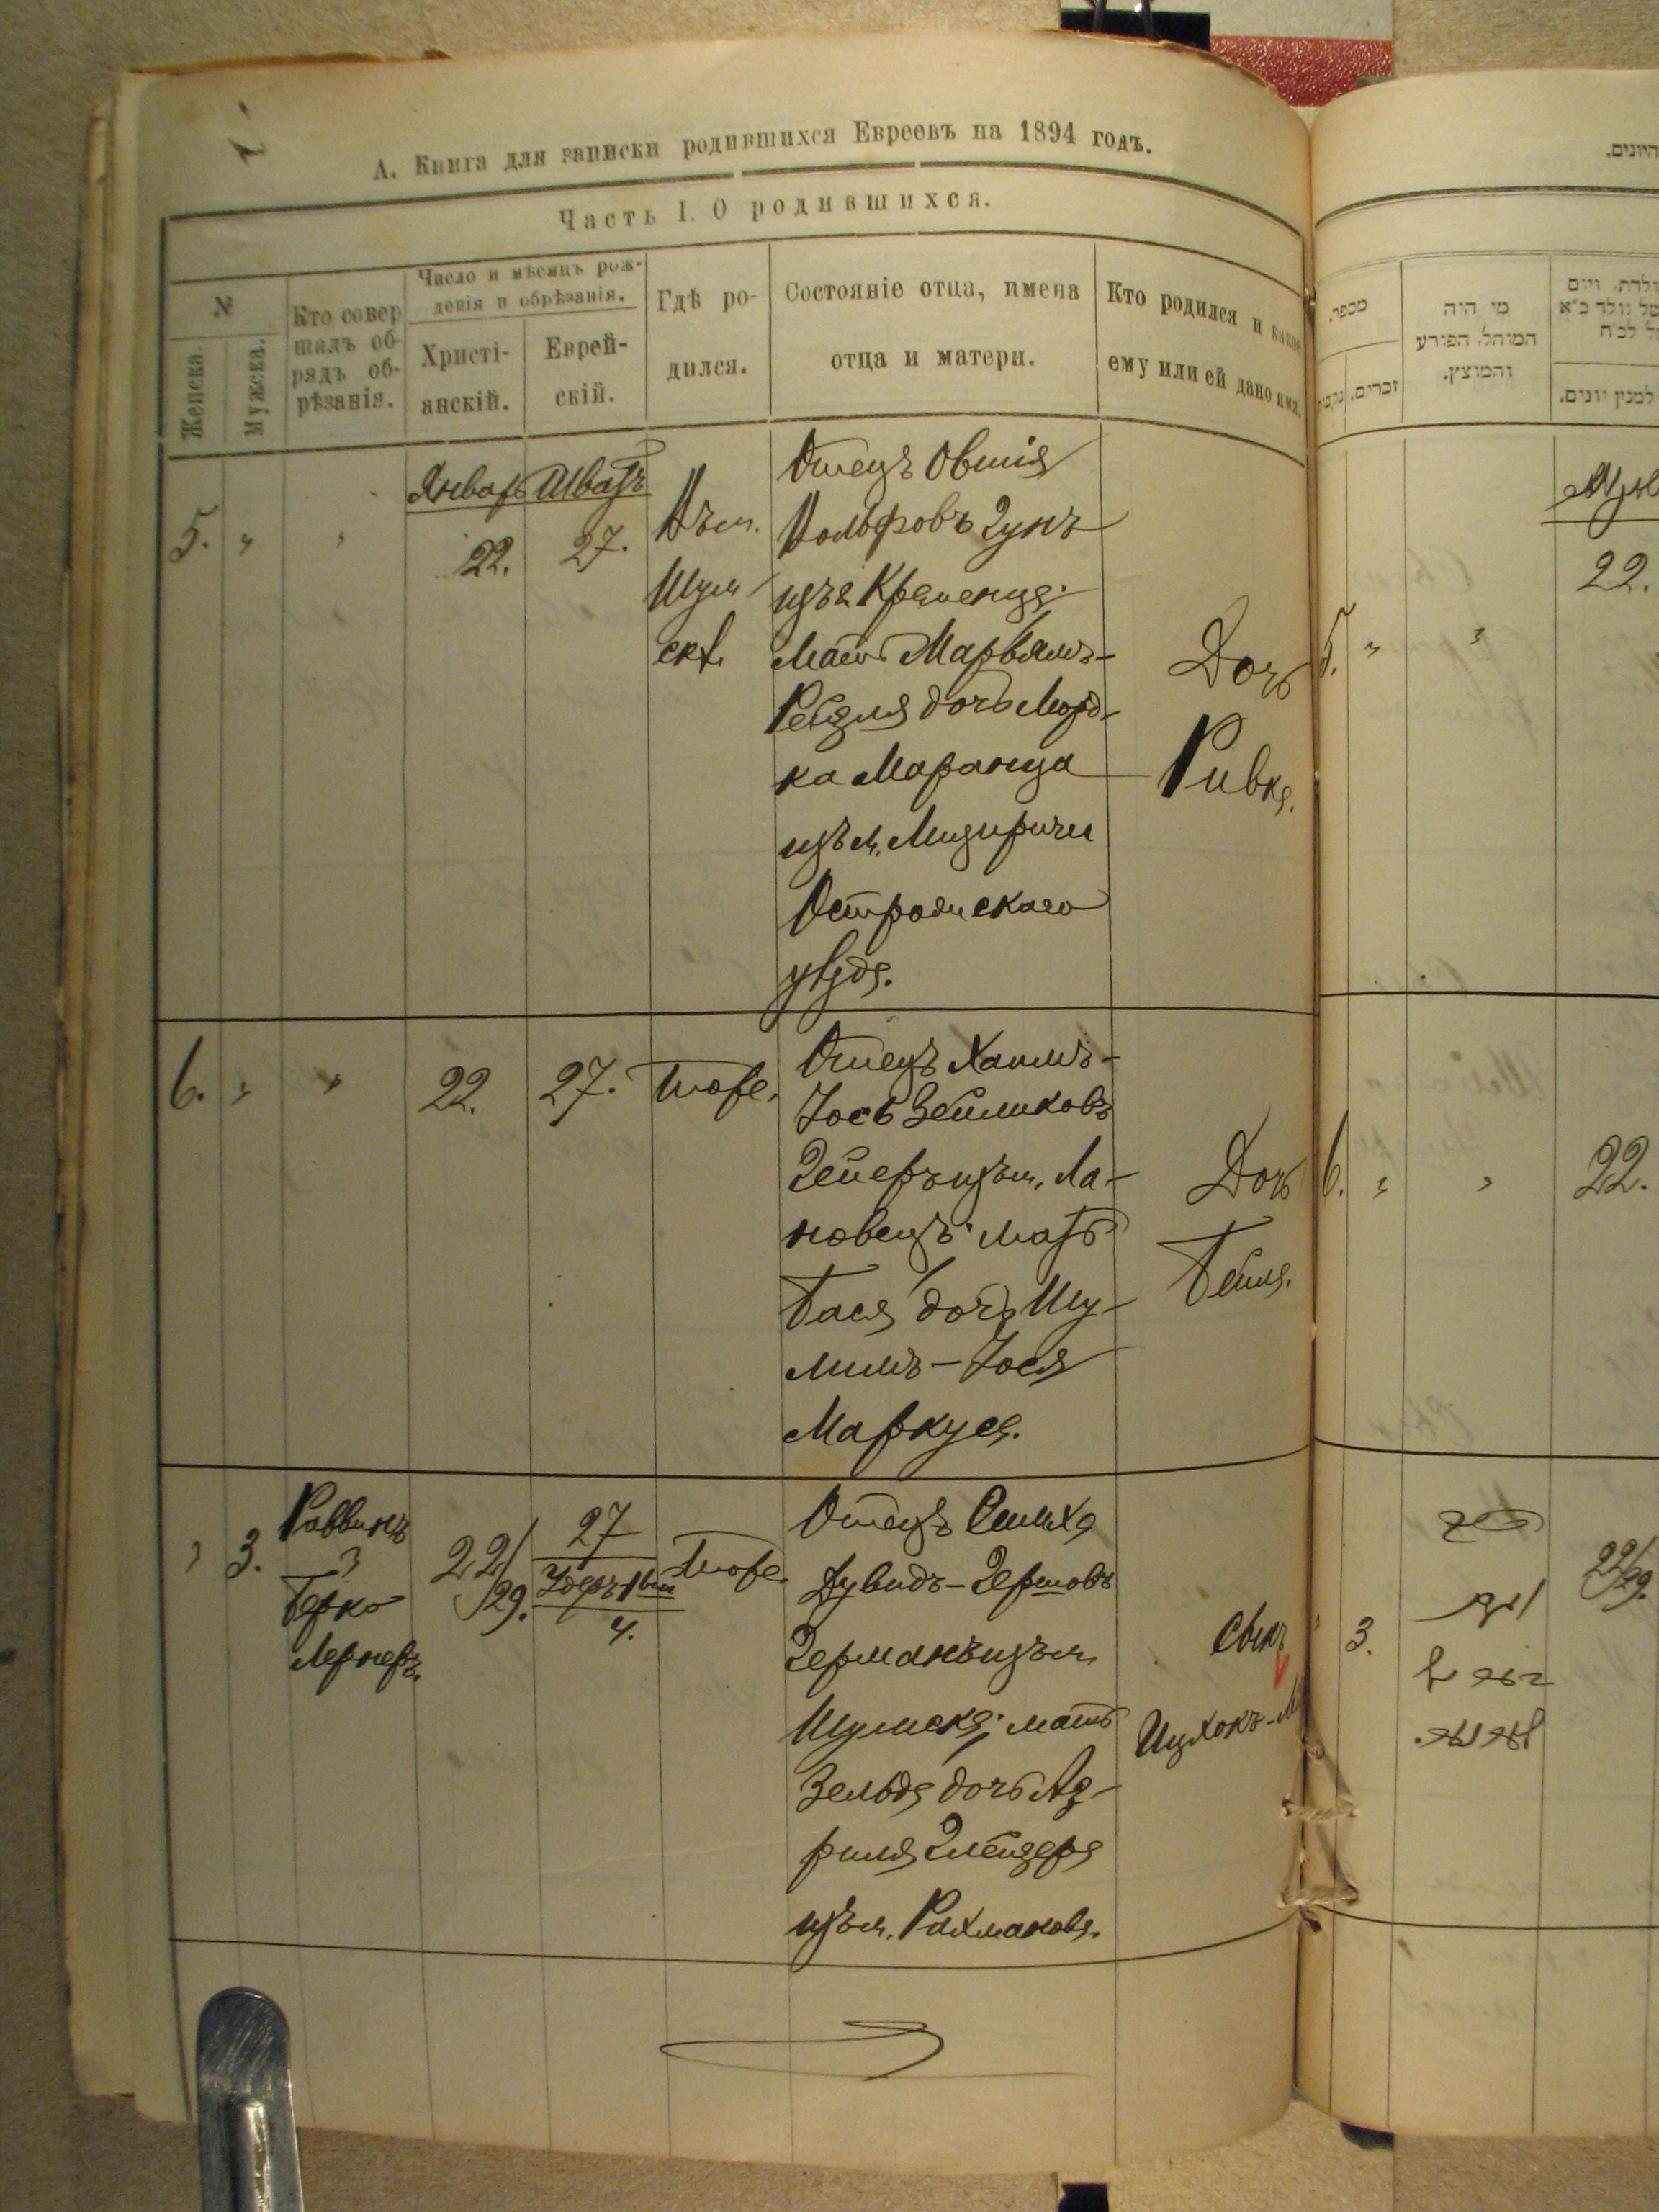 А. Книга для записки родившихся Евреевъ на 1894 годъ.
Часть I. О родившихся.
№
Женска.
Мужска.
Кто совер
шалъ об-
рядъ об-
рѣзанія.
Число и мѣсяцъ рож-
денія и обрѣзанія.
Христі-
анскій.
Еврей-
скій.
Гдѣ ро-
дился.
Состояніе отца, имена
отца и матери.
Кто родился и какое
ему или ей дано имя.
5. " "
Январь Шватъ
22. 27.
Въ м.
Шум
скѣ.
Отецъ Овшія
Вольфовъ Гунъ
изъ г. Кременца;
Мать Марьямъ-
Рейзля дочь Морд-
ка Маранца
изъ м. Мизиричи
Острожскаго
уѣзда.
Дочь
Ривка.
6. " " 22. 27. Тоже.
Отецъ Хаимъ-
Іось Зейликовъ
Гейеръ изъ м. Ла-
новецъ; мать
Бася дочь Шу-
лимъ-Іося
Маркуса.
Дочь
Бейля.
" 3.
Раввинъ
Берко
Лернеръ.
22/
/29.
27
Адеръ 1вый
4.
Тоже.
Отецъ Симха
Дувидъ-Гершовъ
Германъ изъ м.
Шумска; мать
Зельда дочь Аз-
риля Глейзера
изъ м. Рахманова.
Сынъ
Ицхокъ-
היונים.
מספר
זכרים.
מי היה
המוהל, הפורע
והמוצץ.
למנין יונים.
22.
5. " "
6. " " 22.
3.
22/29.